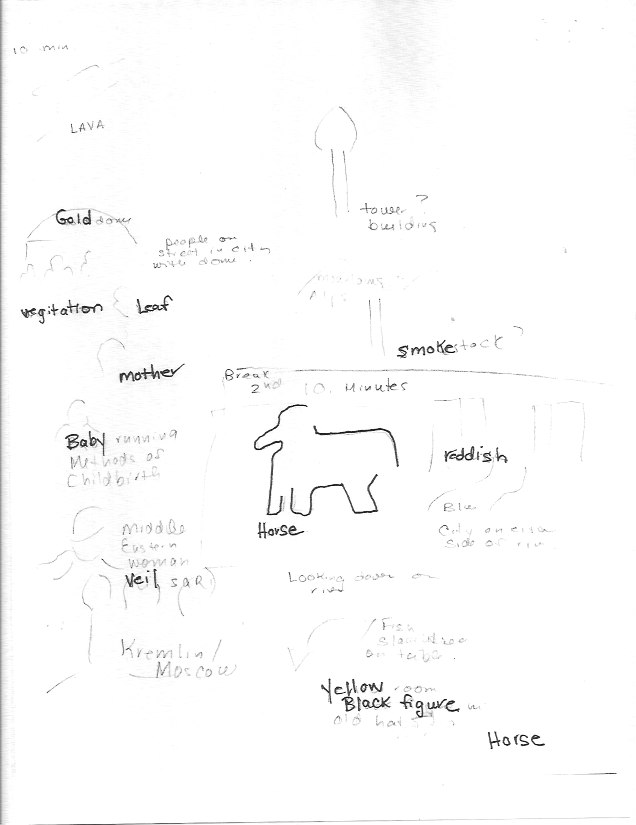 10 min
LAVA
Gold dome
people on
street in city
with dome.
tower ?
building
vegitation
Leaf
Alps
smokestack ?
mother
Break
2nd 10 Minutes
Baby running
Methods of
Childbirth
reddish
Horse
Blue
City on
side of
Middle
Eastern
woman
Veil SARI
Looking down on
river
Kremlin/
Moscow
Fish
on table.
Yellow room
Black figure
old
Horse